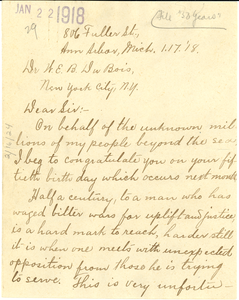 JAN 22 1918
806 Fuller St,
Ann Arbor, Mich. 1.17.'18.
Dr. W. E. B. Du Bois,
New York City, N.Y.
Dear Sir:-
On behalf of the unknown mil
lions of my people beyond the seas
I beg to congratulate you on your fif
tieth birth day which occurs next month.
Half a century, to a man who has
waged bitter wars for uplift and justice
is a hard mark to reach, harder still
it is when one meets with unexpected
opposition from those he is trying
to serve. This is very unfortu-